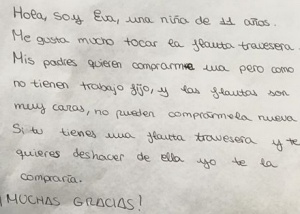 Hola, soy Eva, una niña de 11 años.
Me gusta mucho tocar la flauta travesera.
Mis padres quieren comprarme una pero como
no tienen trabajo fijo, y las flautas son
muy caras, no pueden comprármela nueva
Si tu tienes una flauta travesera y te
quieres deshacer de ella yo te la
compraría.
¡MUCHAS GRACIAS!